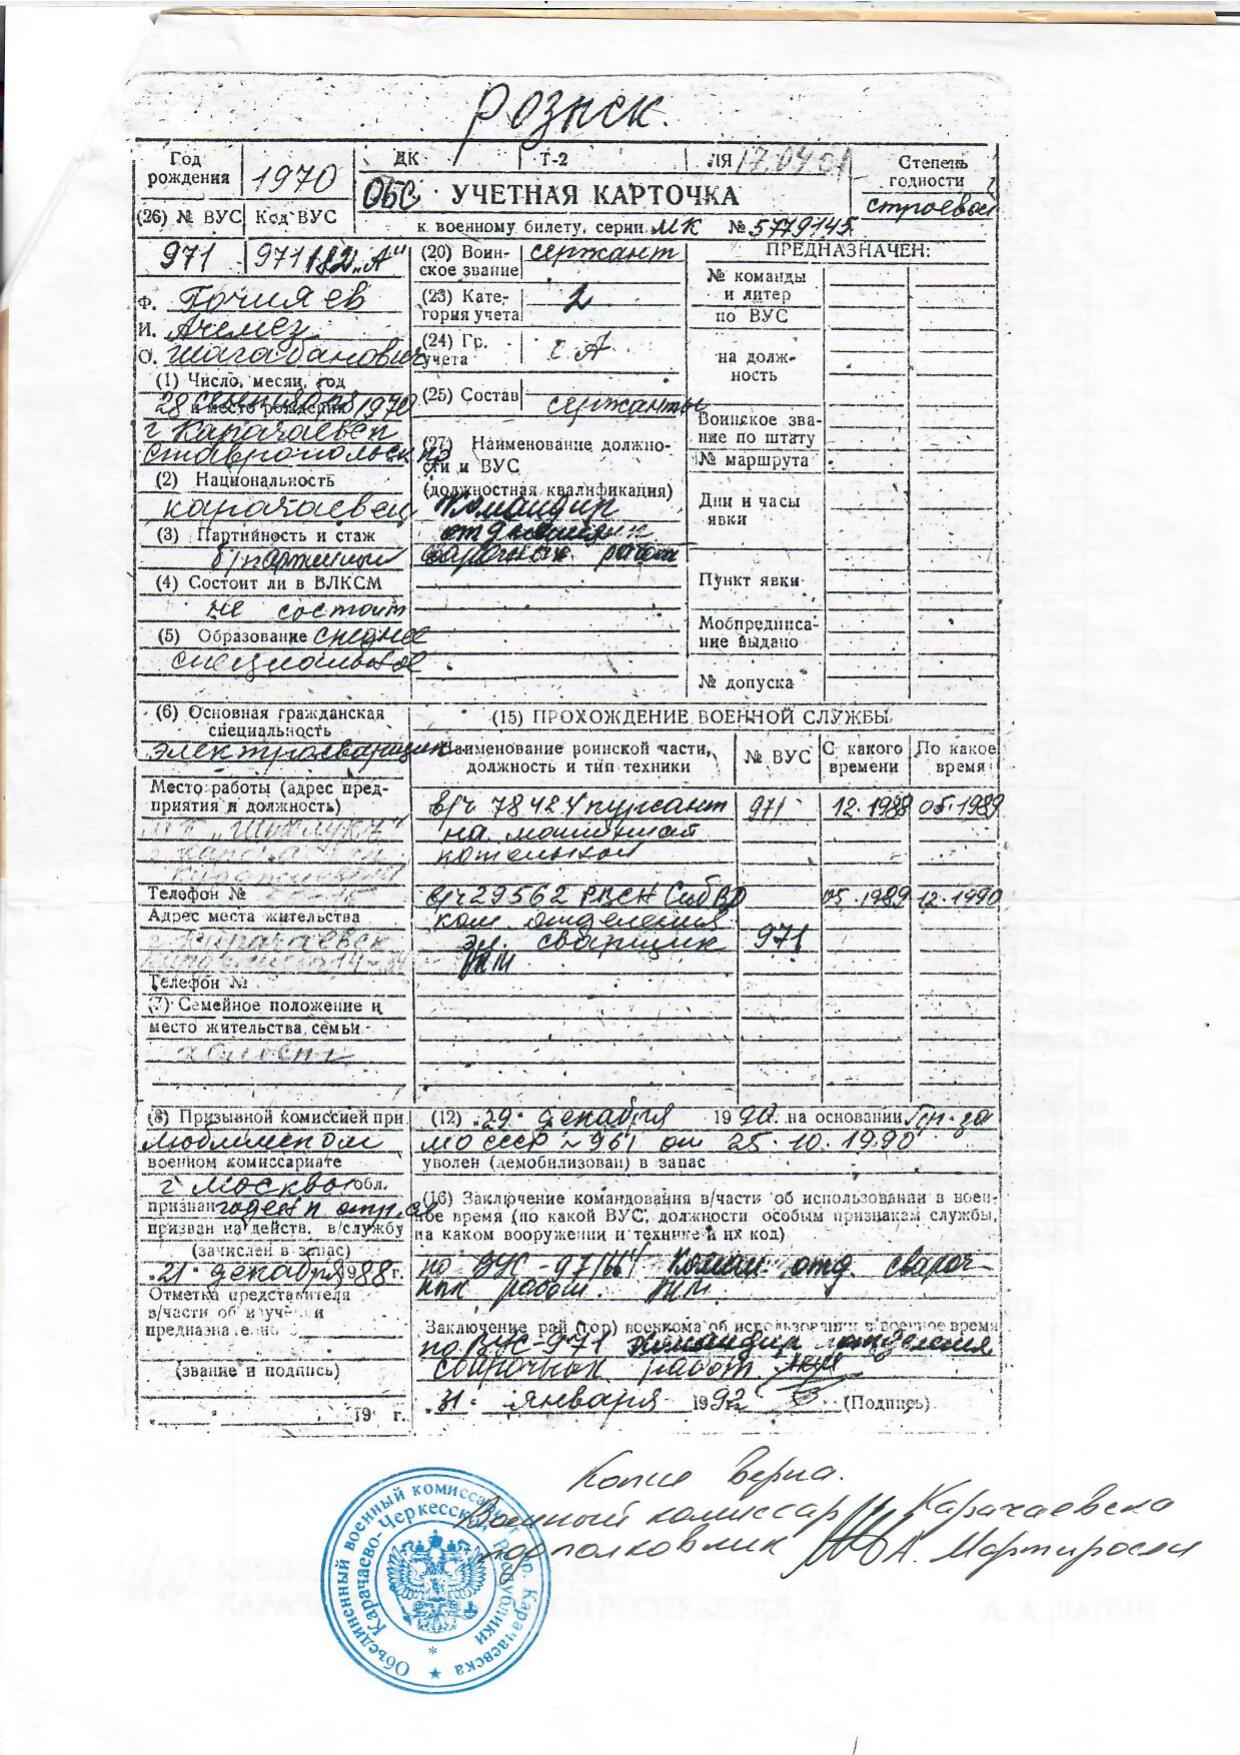 Розыск.
Год рождения 1970
ДК Т-2 ЛЯ 17.04.01
Степень годности строевой
ОБС УЧЕТНАЯ КАРТОЧКА
к военному билету, серии МК № 5779145
(26) № ВУС Код ВУС
971 971182 „А"
Ф. Почияев
И. Ачемез
О. Шагабанович
(1) Число, месяц, год
и место рождения
28 сентября 1970
г Карачаевск
Ставропольск
(2) Национальность
карачаевец
(3) Партийность и стаж
б/партийный
(4) Состоит ли в ВЛКСМ
не состоит
(5) Образование среднее
специальное
(20) Воинское звание сержант
(23) Категория учета 2
(24) Гр. учета А
(25) Состав сержанты
(27) Наименование должно-
сти и ВУС
(должностная квалификация)
Командир
отделения
сварочных работ
ПРЕДНАЗНАЧЕН:
№ команды
и литер
по ВУС
на долж-
ность
Воинское зва-
ние по штату
№ маршрута
Дни и часы
явки
Пункт явки
Мобпредписа-
ние выдано
№ допуска
(6) Основная гражданская
специальность
электросварщик
Место работы (адрес пред-
приятия и должность)
г Карачаевск
Телефон №
Адрес места жительства
г. Карачаевск
Телефон №
(7) Семейное положение и
место жительства семьи
холост
(15) ПРОХОЖДЕНИЕ ВОЕННОЙ СЛУЖБЫ
Наименование воинской части, должность и тип техники № ВУС С какого времени По какое время
в/ч 78424 курсант 971 12.1988 05.1989
на машинист
котельной
в/ч 29562 РВСН СибВО 05.1989 12.1990
ком отделения
эл. сварщик 971
(8) Призывной комиссией при
Люблинском
военном комиссариате
г Москва обл.
признан годен к стр.сл
призван на действ. в/службу
(зачислен в запас)
21 декабря 1988 г.
Отметка представителя
в/части об изучении и
предназначении
(звание и подпись)
19 г.
(12) 29 декабря 1990. на основании Пр-за
МО СССР № 961 от 25.10.1990
уволен (демобилизован) в запас
(16) Заключение командования в/части об использовании в воен-
ное время (по какой ВУС, должности особым признакам службы,
на каком вооружении и технике и их код)
по ВУС-971 Коман отд. свароч-
ных работ.
Заключение рай (гор) военкома об использовании в военное время
по ВУС-971 Командир отделения
сварочных работ
31 января 1992 (Подпись)
Копия верна.
Военный комиссар г. Карачаевска
подполковник А. Мартиросян
Объединенный военный комиссариат гор. Карачаевска
Карачаево-Черкесской Республики